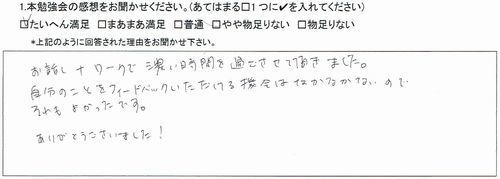 1.本勉強会の感想をお聞かせください。(あてはまる□1つに✔を入れてください)
☑たいへん満足 □まあまあ満足 □普通 □やや物足りない □物足りない
*上記のように回答された理由をお聞かせ下さい。
お話し+ワークで濃い時間を過ごさせて頂きました。
自分のことをフィードバックいただける機会はなかなかないので
それもよかったです。
ありがとうございました!